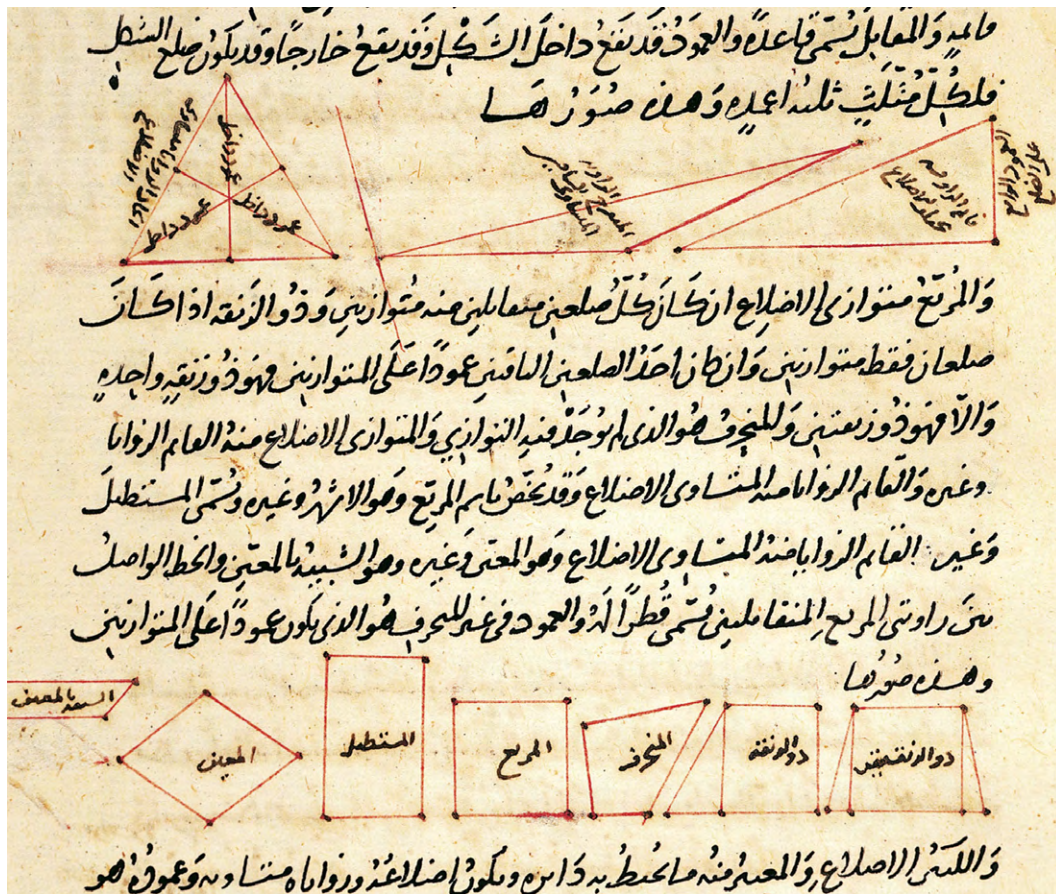 قايمه والمقابل يسمى قاعدة والعمود قد يقع داخل الشكل وقد يقع خارجا وقد يكون ضلع الشكل
فلكل مثلث ثلثه اعمدة وهذه صورها
عمود داخل
عمود داخل
عمود داخل
المنفرج الزاويه
قايم الزاويه
والمربع متوازى الاضلاع ان كان كل ضلعين متقابلين منه متوازيين وذو الزنقه اذا كان
ضلعان فقط متوازيين وان كان احد الضلعين الباقيين عمودا على المتوازيين فهو ذو زنقه واحده
والا فهو ذو زنقتين والمنحرف هو الذى لم يوجد فيه التوازي والمتوازى الاضلاع منه القايم الزوايا
وغيره والقايم الزوايا منه المتساوى الاضلاع وقد يخص باسم المربع وهو الاشهر وغيره ويسمى المستطيل
وغير القايم الزوايا منه المتساوى الاضلاع وهو المعين وغيره وهو الشبيه بالمعين والخط الواصل
بين زاويتى المربع المتقابلتين يسمى قطرا له والعمود فى غير المنحرف هو الذى يكون عمودا على المتوازيين
وهذه صورها
ذو الزنقتين
ذو الزنقه
المنحرف
المربع
المستطيل
المعين
الشبيه بالمعين
والكثير الاضلاع والمعتبر منه ما يحيط به دايره ويكون اضلاعه وزواياه متساويه وعموده هو